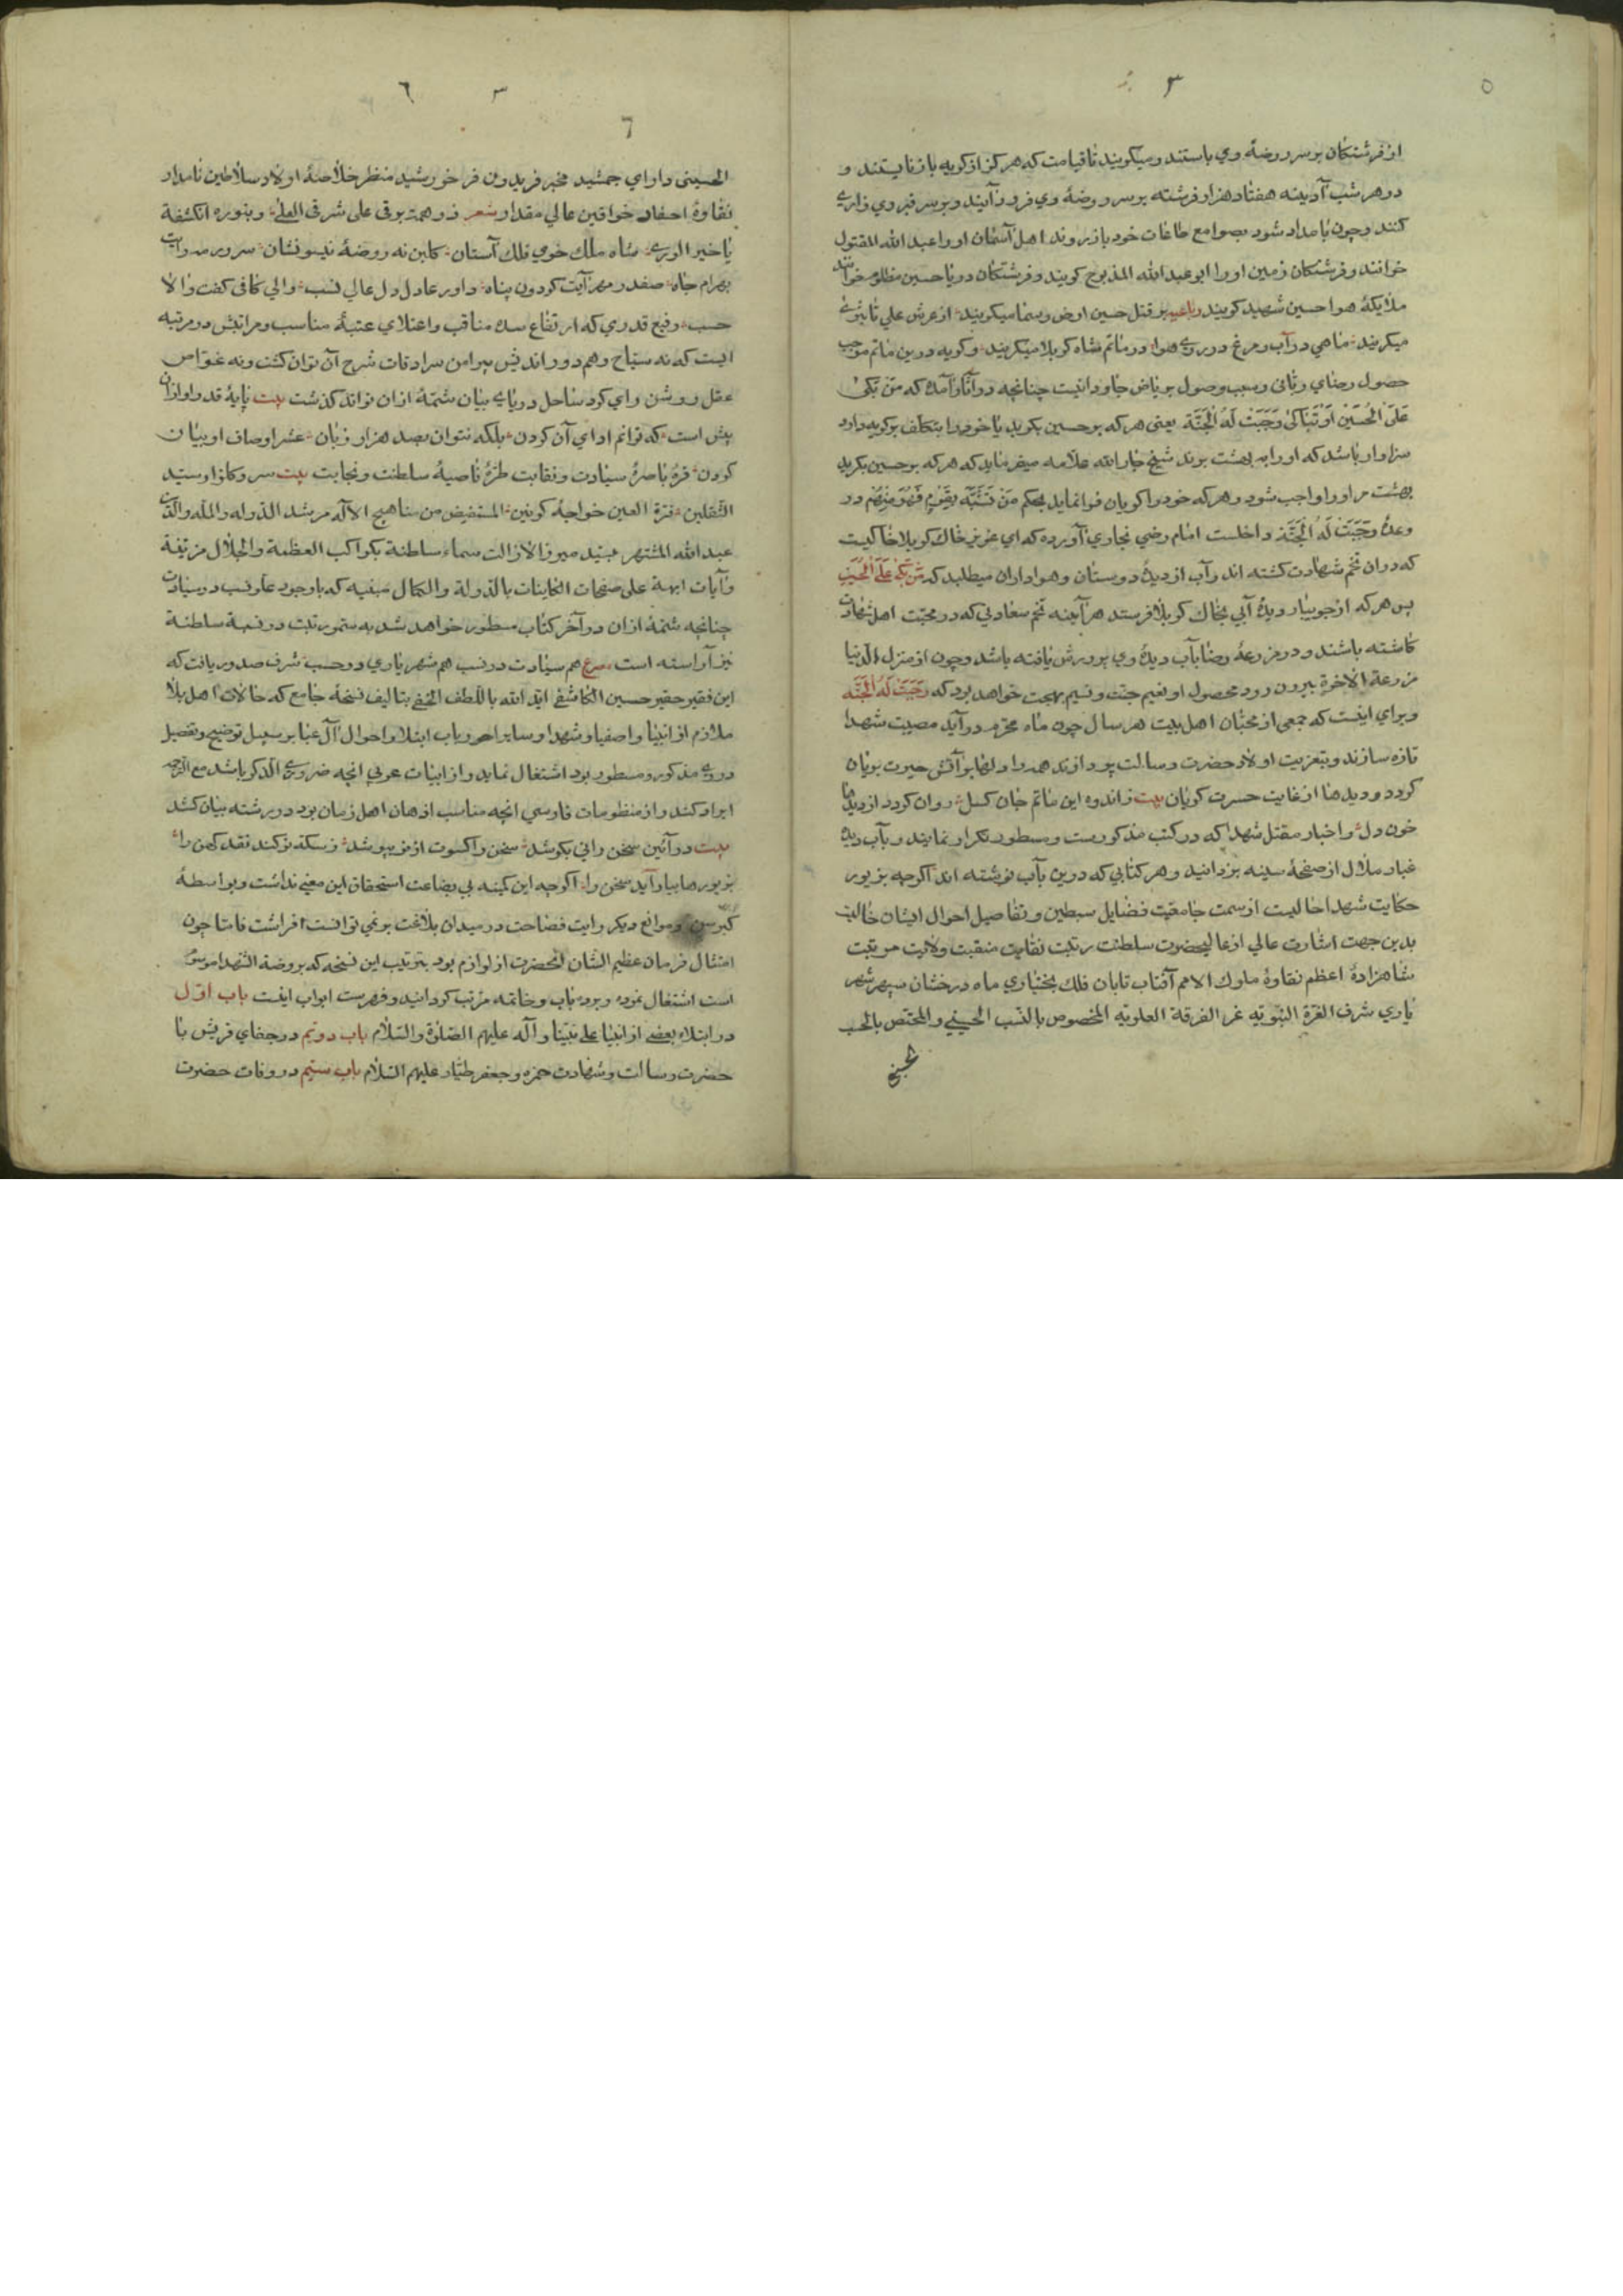 ۵
۳
از فرشتکان بر سر روضهٔ وي باستند و میکویند تا قیامت که هرکز از کویه باز نایستند و
در هر شب آدینه هفتاد هزار فرشته بر سر روضهٔ وي فرود آیند و بر سر قبر وي زاري
کنند و چون بامداد شود بصوامع طاعات خود باز روند اهل آسمان او را عبد الله المقتول
خوانند و فرشتکان زمین او را ابو عبد الله المذبوح کویند و فرشتکان دریا حسین مظلوم خوانند
ملایکهٔ هوا حسین شهید کویند رباعیه بر قتل حسین ارض و سما میکریند از عرش علي تا بثري
میکریند ماهي در آب و مرغ در روي هوا در ماتم شاه کربلا میکریند و کریه درین ماتم موجب
حصول رضاي رباني و سبب وصول بریاض جاودانیست چنانچه در آثار آمده که مَنْ بَکیٰ
عَلَی الْحُسَیْنِ اَوْ تَبَاکیٰ وَجَبَتْ لَهُ الْجَنَّة یعنی هر که بر حسین بکرید یا خود را بتکلف بر کریه دارد
سزاوار باشد که او را به بهشت برند شیخ جار الله علامه میفرماید که هر که بر حسین بکرید
بهشت مر او را واجب شود و هر که خود را کریان فرا نماید بحکم مَنْ تَشَبَّهَ بِقَوْمٍ فَهُوَ مِنْهُم در
وعدهٔ وَجَبَتْ لَهُ الْجَنَّة داخلست امام رضي بخاري آورده که اي عزیز خاک کربلا خاکیست
که در ان تخم شهادت کشته اند و آب از دیدهٔ دوستان و هواداران میطلبد که مَنْ بَکیٰ عَلَی الْحُسَیْنِ
پس هر که از جویبار دیدهٔ آبي بخاک کربلا فرستد هر آینه تخم سعادتي که در محبت اهل شهادت
کاشته باشند و در مزرعهٔ رضا بآب دیدهٔ وي پرورش یافته باشد و چون از منزل الدنیا
مزرعة الاخرة بیرون رود محصول او نعیم جنت و نسیم بهجت خواهد بود که وَجَبَتْ لَهُ الْجَنَّة
و براي اینست که جمعي از محبان اهل بیت هر سال چون ماه محرم در آید مصیبت شهدا
تازه سازند و بتعزیت اولاد حضرت رسالت پردازند همه را دلها بر آتش حیرت بریان
کردد و دیدها از غایت حسرت کریان بیت ز اندوه این ماتم جان کسل روان کردد از دیدها
خون دل و اخبار مقتل شهدا که در کتب مذکورست و مسطور تکرار نمایند و بآب دیده
غبار ملال از صفحهٔ سینه بزدانید و هر کتابي که درین باب نوشته اند اکرچه بزیور
حکایت شهدا حالیست از سمت جامعیت فضایل سبطین و تفاصیل احوال ایشان خالیست
بدین جهت اشارت عالي از عالیحضرت سلطنت رتبت نقابت منقبت ولایت مرتبت
شاهزادهٔ اعظم نقاوهٔ ملوک الامم آفتاب تابان فلک بختیاري ماه درخشان سپهر شهر
یاري شرف العترة النبویّه غر الفرقة العلویّه المخصوص بالنسب الحسیني و المختص بالحسب
الحسني
٦
۳
الحسیني داراي جمشید مخبر فریدون فر خورشید منظر خلاصهٔ اولاد سلاطین نامدار
نقاوهٔ احفاد خواقین عالي مقدار شعر ذو همت برقي علی شرقي العلی و بنوره انکشفة
یا خیر الوري شاه ملک خوي فلک آستان کلبن نه روضهٔ نیسو نشان سرور مه رایت
بهرام جاه صفدر مهر آیت کردون پناه داور عادل دل عالي نسب والي کافي کف والا
حسب رفیع قدري که ارتفاع سدهٔ مناقب و اعتلاي عتبهٔ مناسب و مراتبش در مرتبه
ایست که نه سیّاح وهم دور اندیش پیرامن سرادقات شرح آن توان کشت و نه غوّاص
عقل روشن راي کرد ساحل دریاي بیان شمّهٔ ازان تواند کذشت بیت پایهٔ قدر او ازان
بیش است که توانم اداي آن کردن بلکه نتوان بصد هزار زبان عشر اوصاف او بیان
کردن قرهٔ باصرهٔ سیادت و نقابت طرهٔ ناصیهٔ سلطنت و نجابت بیت سر و کلزار سید
الثقلین قرة العین خواجهٔ کونین المستفیض من مناهیج الآله مرشد الدوله والملّه والدین
عبد الله المشتهر بسید میرزا لازالت سماء سلطنة بکواکب العظمة والجلال مزینة
و آیات ابهة علی صفحات الکاینات بالدولة والکمال مبنیه که باوجود علو نسب در سیادت
چنانچه شمّهٔ ازان در آخر کتاب مسطور خواهد شد به سمو رتبت در نسبة سلطنة
نیز آراسته است مصرع هم سیادت در نسب هم شهریاري در حسب شرف صدور یافت که
این فقیر حقیر حسین الکاشفي ایده الله باللطف الخفي بتالیف نسخهٔ جامع که حالات اهل بلا
ملازم از انبیا و اصفیا و شهدا و سایر ارباب ابتلا و احوال آل عبا بر سبیل توضیح و تفصیل
در وي مذکور و مسطور بود اشتغال نماید و از ابیات عربي آنچه ضروري الذکر باشد مع الترجمه
ایراد کند و از منظومات فارسي آنچه مناسب اذهان اهل زمان بود در رشته بیان کشد
بیت در آئین سخن راني بکوشد سخن را کسوت از نو بپوشد ز سکه نو کند نقد کهن را
بزیورها بیاراید سخن را اکرچه این کمینه بي بضاعت استحقاق این معني نداشت و بواسطهٔ
کبر سن و موانع دیکر رایت فصاحت در میدان بلاغت بر نمي توانست افراشت فامّا چون
امتثال فرمان عظیم الشان آنحضرت از لوازم بود بترتیب این نسخه که بروضة الشهدا موسوم
است اشتغال نمود و بر ده باب و خاتمه مرتب کردانید و فهرست ابواب اینست باب اوّل
در ابتلاء بعضي از انبیا علی نبیّنا و آله علیهم الصلوة والسّلام باب دویّم در جفاي قریش با
حضرت رسالت و شهادت حمزه و جعفر طیّار علیهم السّلام باب سیّم در وفات حضرت